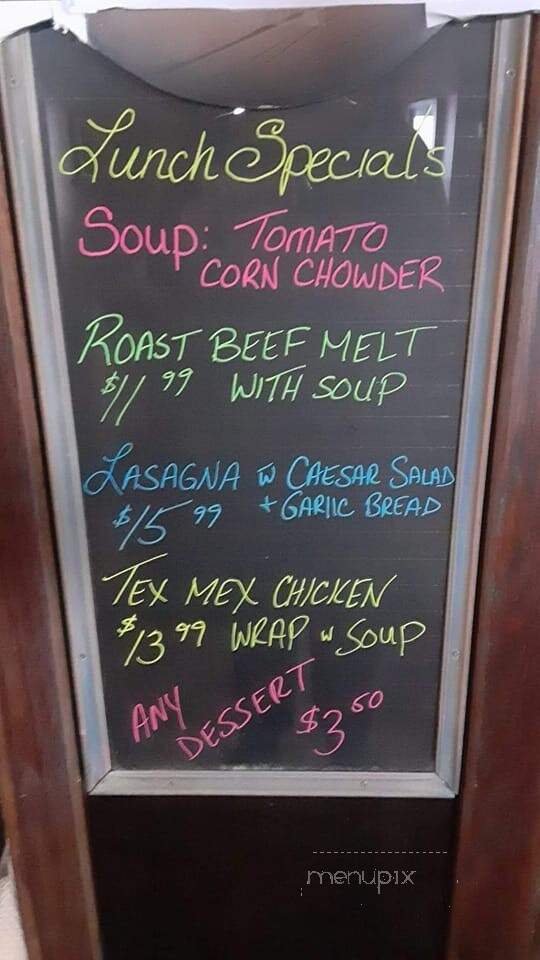 Lunch Specials
Soup: Tomato
Corn Chowder
Roast Beef Melt
$11.99 with Soup
Lasagna w Caesar Salad
$15.99 + Garlic Bread
Tex Mex Chicken
$13.99 Wrap w Soup
Any
Dessert $3.50
menupix